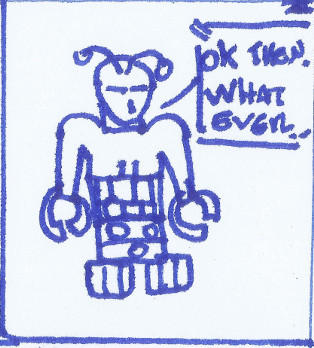 OK THEN.
WHAT
EVER..